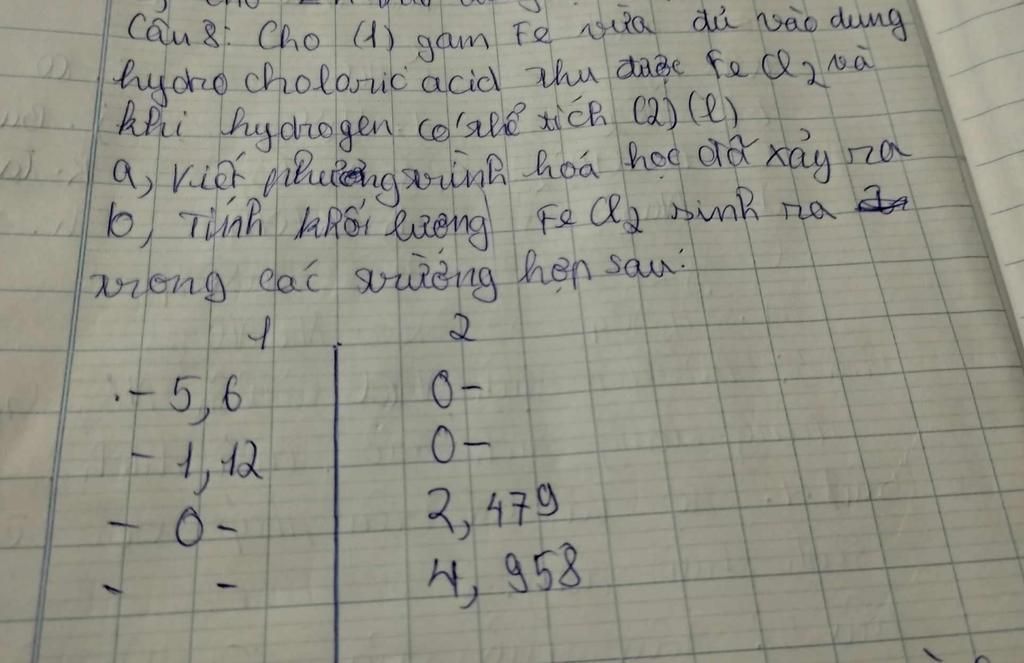 Câu 8: Cho (1) gam Fe vừa đủ vào dung
hydro choloric acid thu được FeCl2 và
khí hydrogen có thể tích (2) (l)
a, Viết phương trình hoá học đã xảy ra
b, Tính khối lượng FeCl2 sinh ra
trong các trường hợp sau:
1 2
- 5,6 0-
- 1,12 0-
- 0- 2,479
- - 4,958